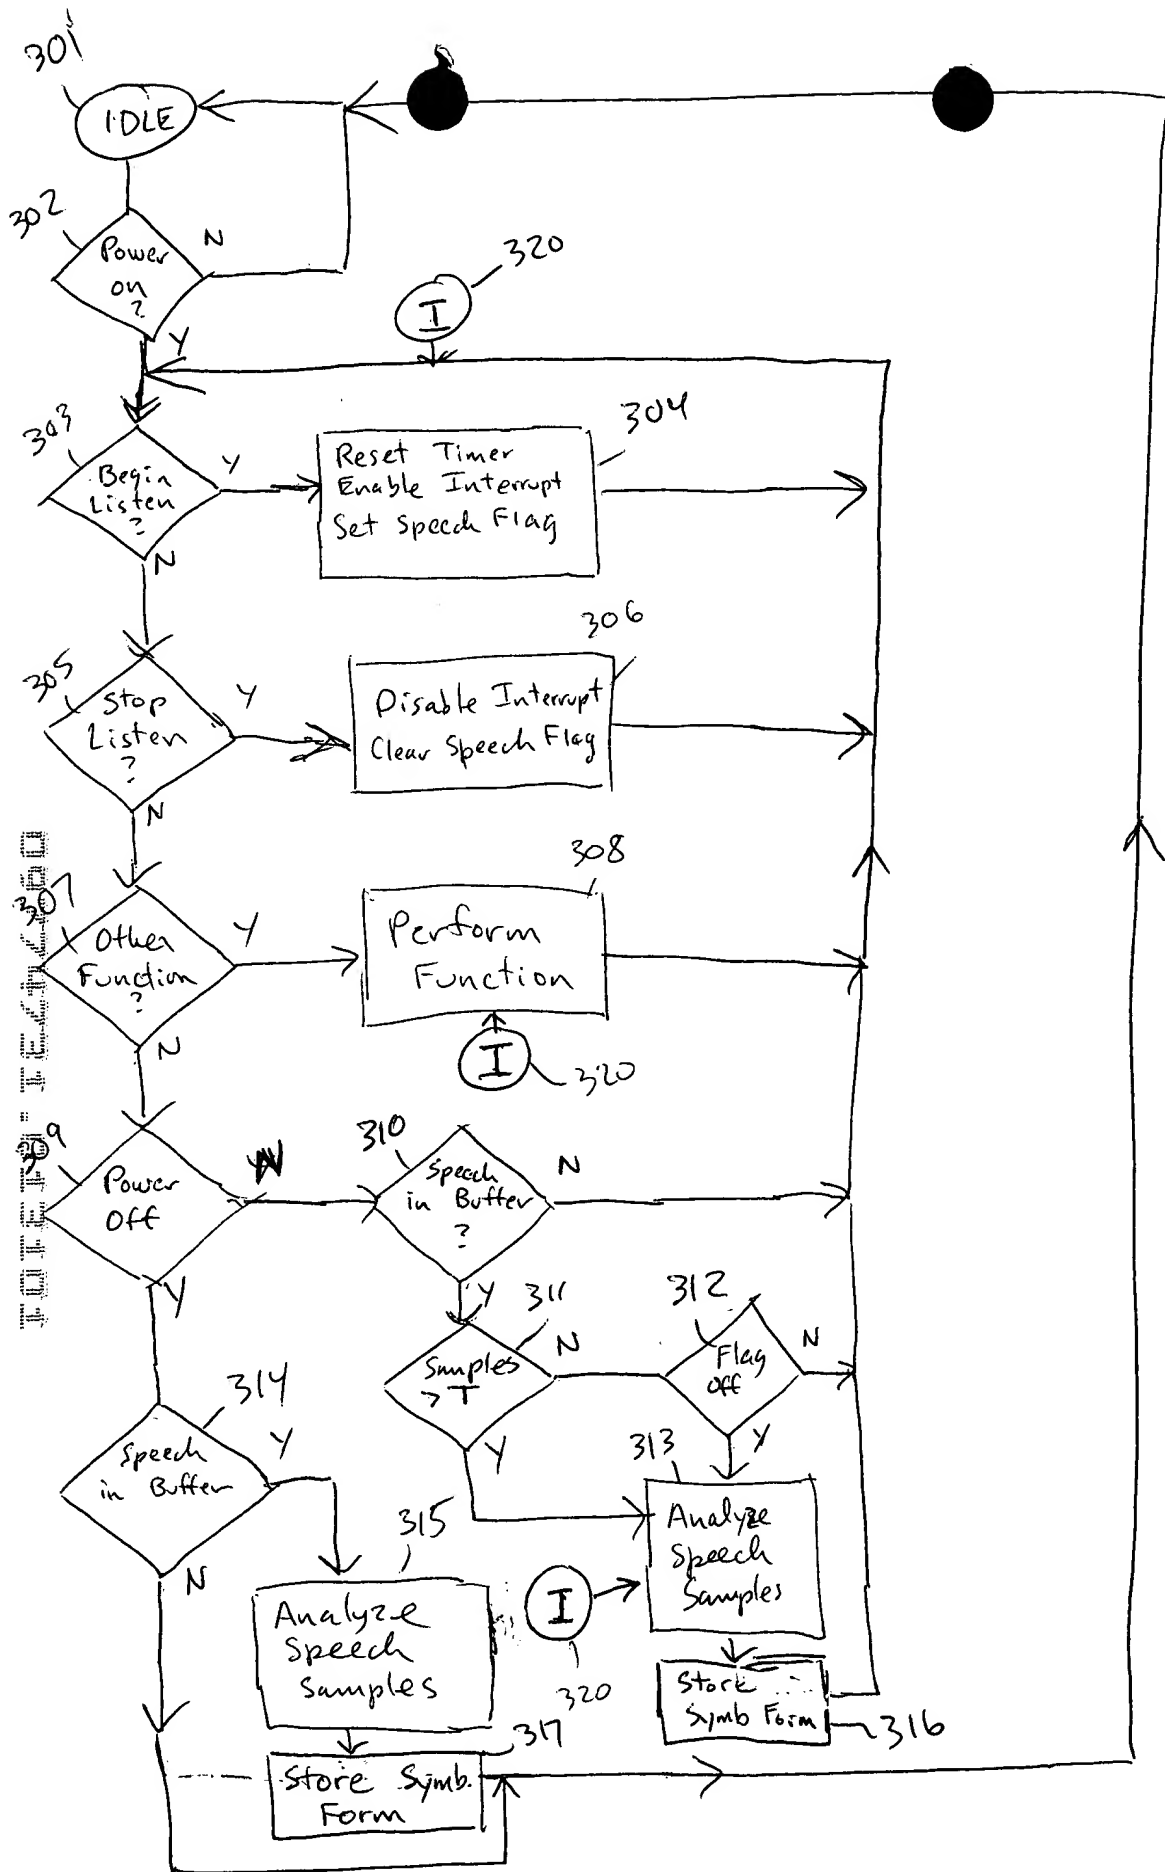 301
IDLE
302
Power
on
?
N
Y
320
I
303
Begin
Listen
?
Y
N
304
Reset Timer
Enable Interrupt
Set Speech Flag
305
Stop
Listen
?
Y
N
306
Disable Interrupt
Clear Speech Flag
307
Other
Function
?
Y
N
308
Perform
Function
I
320
309
Power
Off
N
Y
310
Speech
in Buffer
?
N
Y
311
Samples
> T
N
Y
312
Flag
Off
N
Y
313
Analyze
Speech
Samples
I
320
Store
Symb Form
316
314
Speech
in Buffer
Y
N
315
Analyze
Speech
Samples
317
Store Symb.
Form